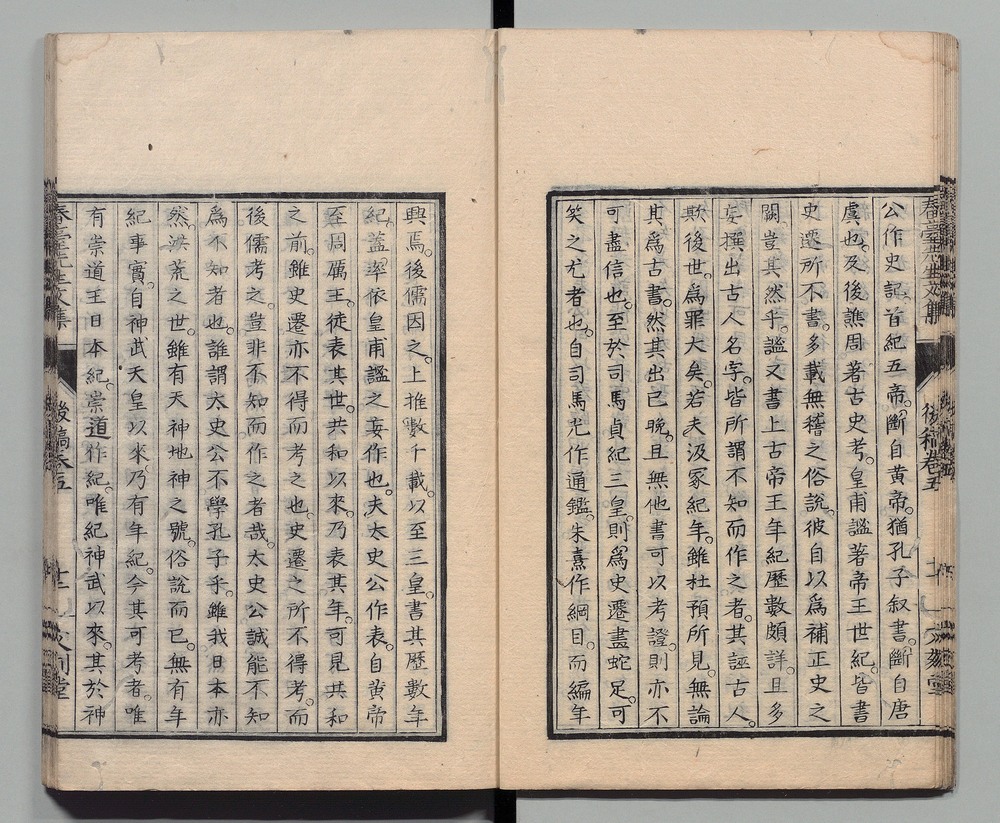 公作史記。首紀五帝。斷自黄帝。猶孔子叙書。斷自唐
虞也。及後譙周著古史考。皇甫謐著帝王世紀。皆書
史遷所不書。多載無稽之俗說。彼自以爲補正史之
闕。豈其然乎。謐又書上古帝王年紀歷數頗詳。且多
妄撰出古人名字。皆所謂不知而作之者。其誣古人。
欺後世。爲罪大矣。若夫汲冢紀年。雖杜預所見。無論
其爲古書。然其出已晩。且無他書可以考證。則亦不
可盡信也。至於司馬貞紀三皇。則爲史遷畫蛇足。可
笑之尤者也。自司馬光作通鑑。朱熹作綱目。而編年
興焉。後儒因之。上推數千載。以至三皇。書其歷數年
紀。蓋率依皇甫謐之妄作也。夫太史公作表。自黄帝
至周厲王。徒表其世。共和以來。乃表其年。可見共和
之前。雖史遷亦不得而考之也。史遷之所不得考。而
後儒考之。豈非不知而作之者哉。太史公誠能不知
爲不知者也。誰謂太史公不學孔子乎。雖我日本亦
然。洪荒之世。雖有天神地神之號。俗說而已。無有年
紀事實。自神武天皇以來。乃有年紀。今其可考者。唯
有崇道王日本紀。崇道作紀。唯紀神武以來。其於神
春臺先生文集
後稿卷五
十一